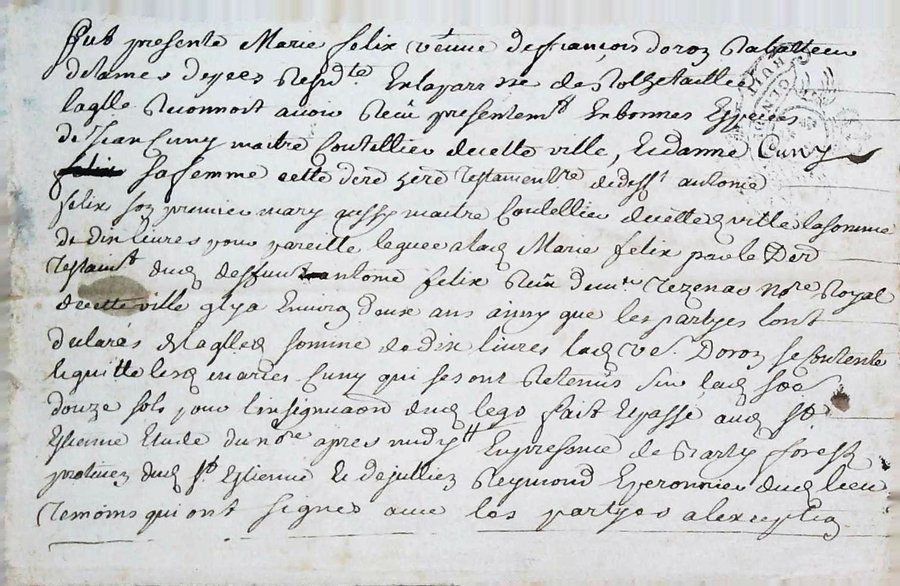 fut presente Marie felix veuve de françois doron Rabatteur
de lames depees Resid.te En la parr.sse de Rochetaillee
laqlle Reconnoit avoir Receu presentem.t En bonnes Especes
de Jean Cuny maitre Coutellier de cette ville, Et d'anne Cuny
felix sa femme cette dern.re here Testament.re de deff.t antoine
felix son premier mary aussy maitre Coutellier de cette ville la somme
de dix livres pour pareille leguee a lad. Marie felix par le Der
Testam.t dud. deffunt antoine felix Receu dem.re Tezenas No.re Royal
de cette ville q.l y a Environ douze ans ainsy que les partyes l'ont
declaré De laqlle somme de dix livres lad. ve. Doron se Contente
Et quitte lesd. maries Cuny qui se sont Retenus sur lad. so.e
douze sols pour l'insignuaon dud. legs fait Et passé aud. St
Estienne Etude du no.re apres midy En presence de Barty forest
pratticien dud. St Estienne Et de Jullien Reymond Eperonnier dud. lieu
Temoins qui ont signé avec les partyes a l'exception